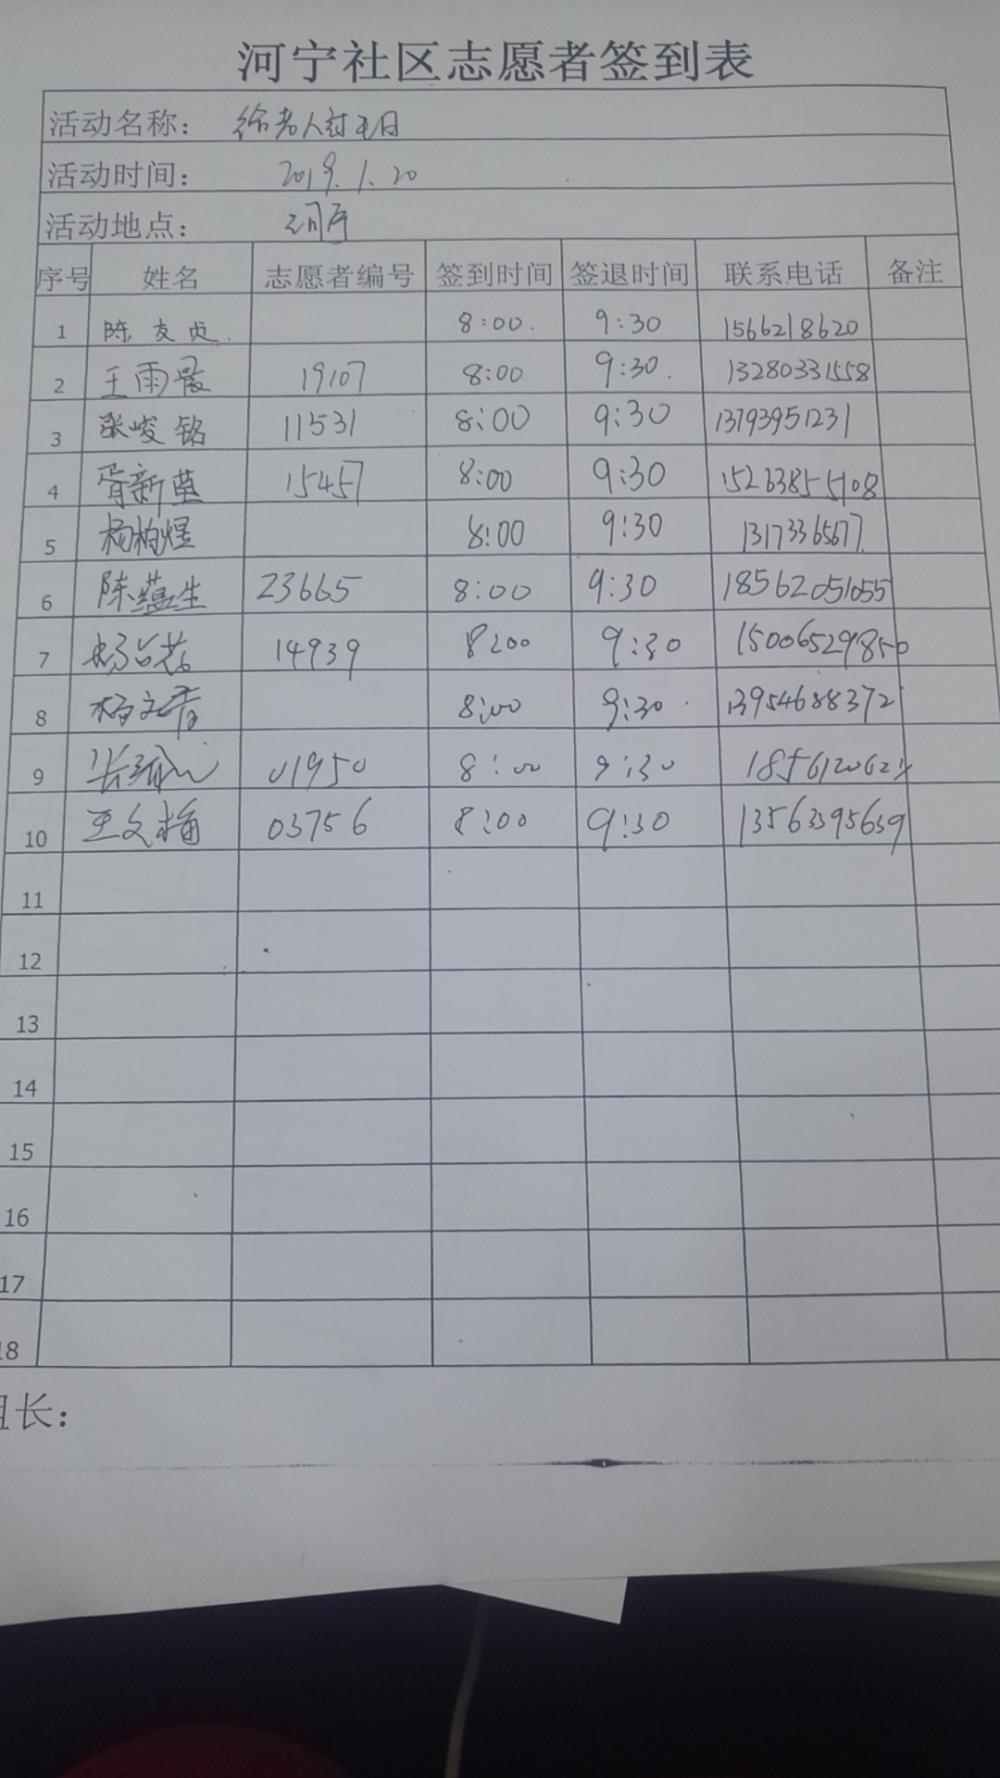 河宁社区志愿者签到表
活动名称：给老人过生日
活动时间：2019.1.20
活动地点：
序号 姓名 志愿者编号 签到时间 签退时间 联系电话 备注
1 陈友贞 8:00. 9:30 1566218620
2 王雨 19107 8:00 9:30. 13280331558
3 张峻铭 11531 8:00 9:30 13793951231
4 胥新 15457 8:00 9:30 15263855108
5 杨柏煜 8:00 9:30 13173365677
6 陈蕴生 23665 8:00 9:30 18562051055
7 14939 8:00 9:30 15006529850
8 杨文青 8:00 9:30 13954688372
9 01950 8:00 9:30
10 王文梅 03756 8:00 9:30 13563395639
11
12
13
14
15
16
17
18
组长：